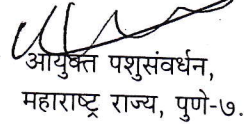 आयुक्त पशुसंवर्धन,
महाराष्ट्र राज्य, पुणे-७.